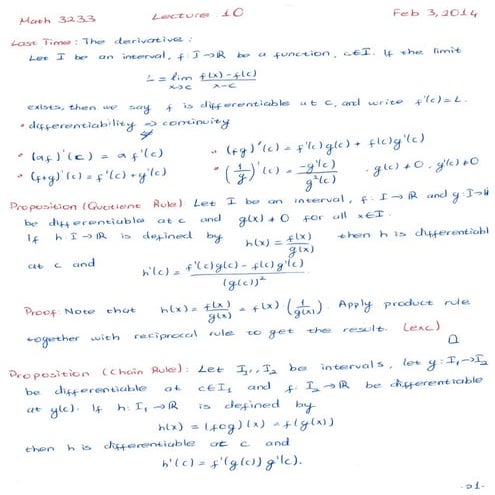 Math 3233 Lecture 10 Feb 3, 2014
Last Time: The derivative:
Let I be an interval, f: I→ℝ be a function, c∈I. If the limit
L = lim_{x→c} (f(x)-f(c))/(x-c)
exists, then we say f is differentiable at c, and write f'(c)=L.
• differentiability ⇒ continuity
• (af)'(c) = a f'(c) • (fg)'(c) = f'(c)g(c) + f(c)g'(c)
• (f+g)'(c) = f'(c)+g'(c) • (1/g)'(c) = -g'(c)/g²(c) , g(c)≠0, g'(c)≠0
Proposition (Quotient Rule): Let I be an interval, f: I→ℝ and g: I→ℝ
be differentiable at c and g(x)≠0 for all x∈I.
If h: I→ℝ is defined by h(x) = f(x)/g(x) then h is differentiabl
at c and
h'(c) = (f'(c)g(c) - f(c)g'(c))/(g(c))²
Proof: Note that h(x) = f(x)/g(x) = f(x) (1/g(x)). Apply product rule
together with reciprocal rule to get the result. (exc)
□
Proposition (Chain Rule): Let I₁, I₂ be intervals, let g: I₁→I₂
be differentiable at c∈I₁ and f: I₂→ℝ be differentiable
at g(c). If h: I₁→ℝ is defined by
h(x) = (f∘g)(x) = f(g(x))
then h is differentiable at c and
h'(c) = f'(g(c)) g'(c).
-21-